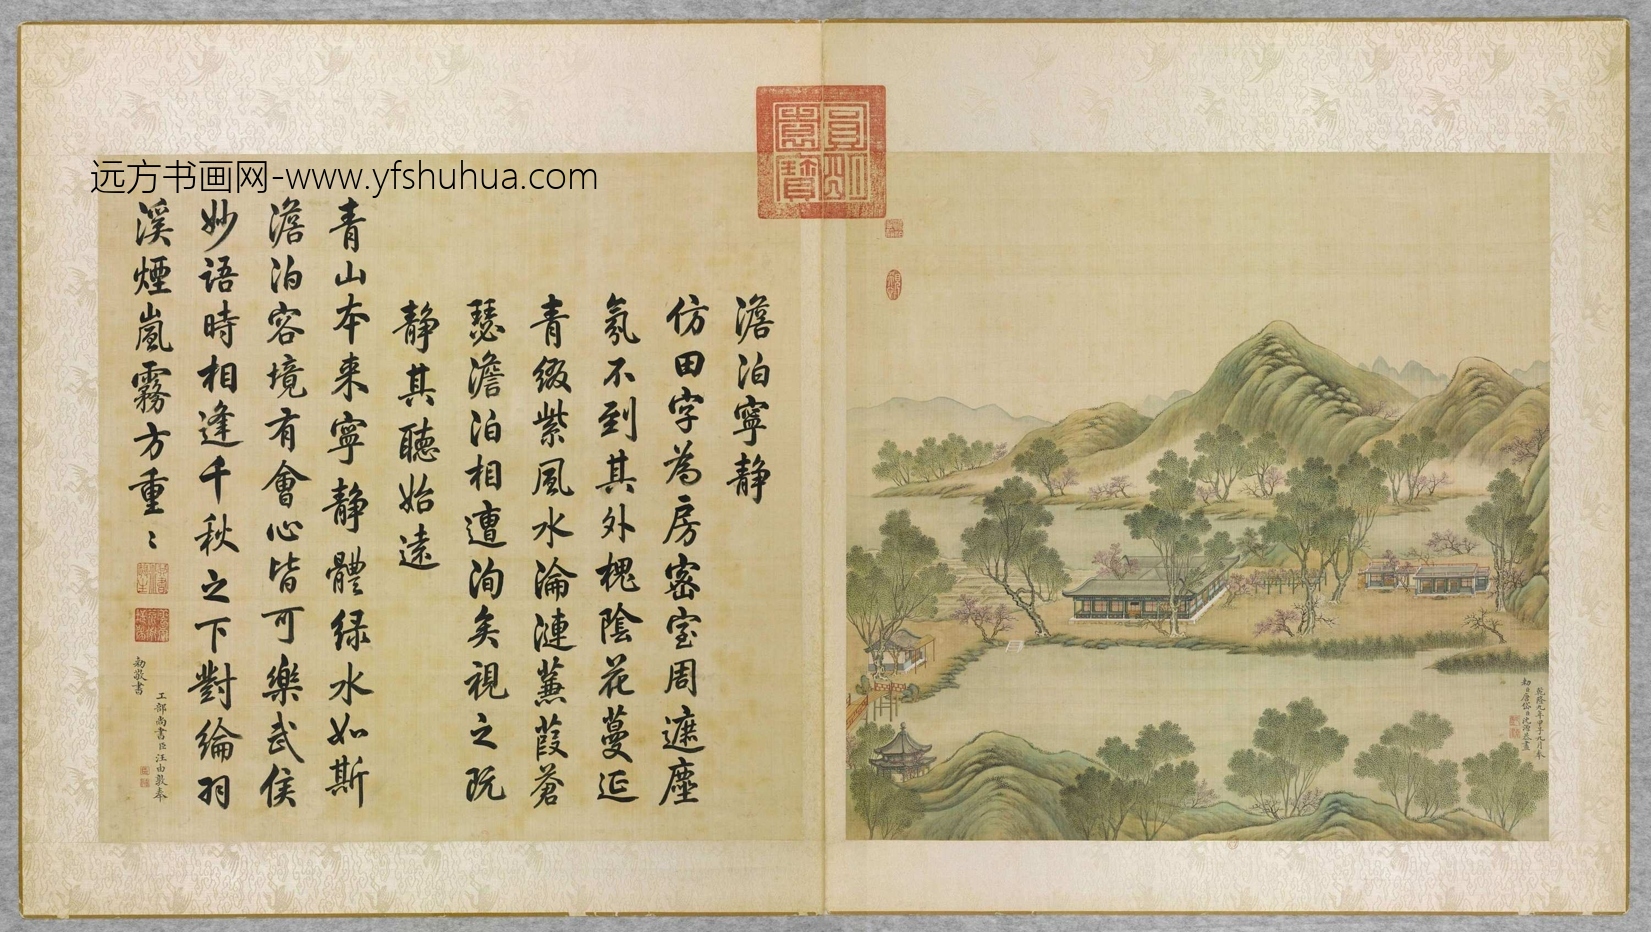 远方书画网-www.yfshuhua.com
圓明
園寶
乾隆九年甲子九月奉
勅臣唐岱臣沈源恭畫
澹泊寧靜
仿田字為房密室周遮塵
氛不到其外槐陰花蔓延
青綴紫風水淪漣蒹葭蒼
瑟澹泊相遭洵矣視之既
靜其聽始遠
青山本來寧靜體綠水如斯
澹泊容境有會心皆可樂武侯
妙語時相逢千秋之下對綸羽
溪煙嵐霧方重〻
工部尚書臣汪由敦奉
勅敬書